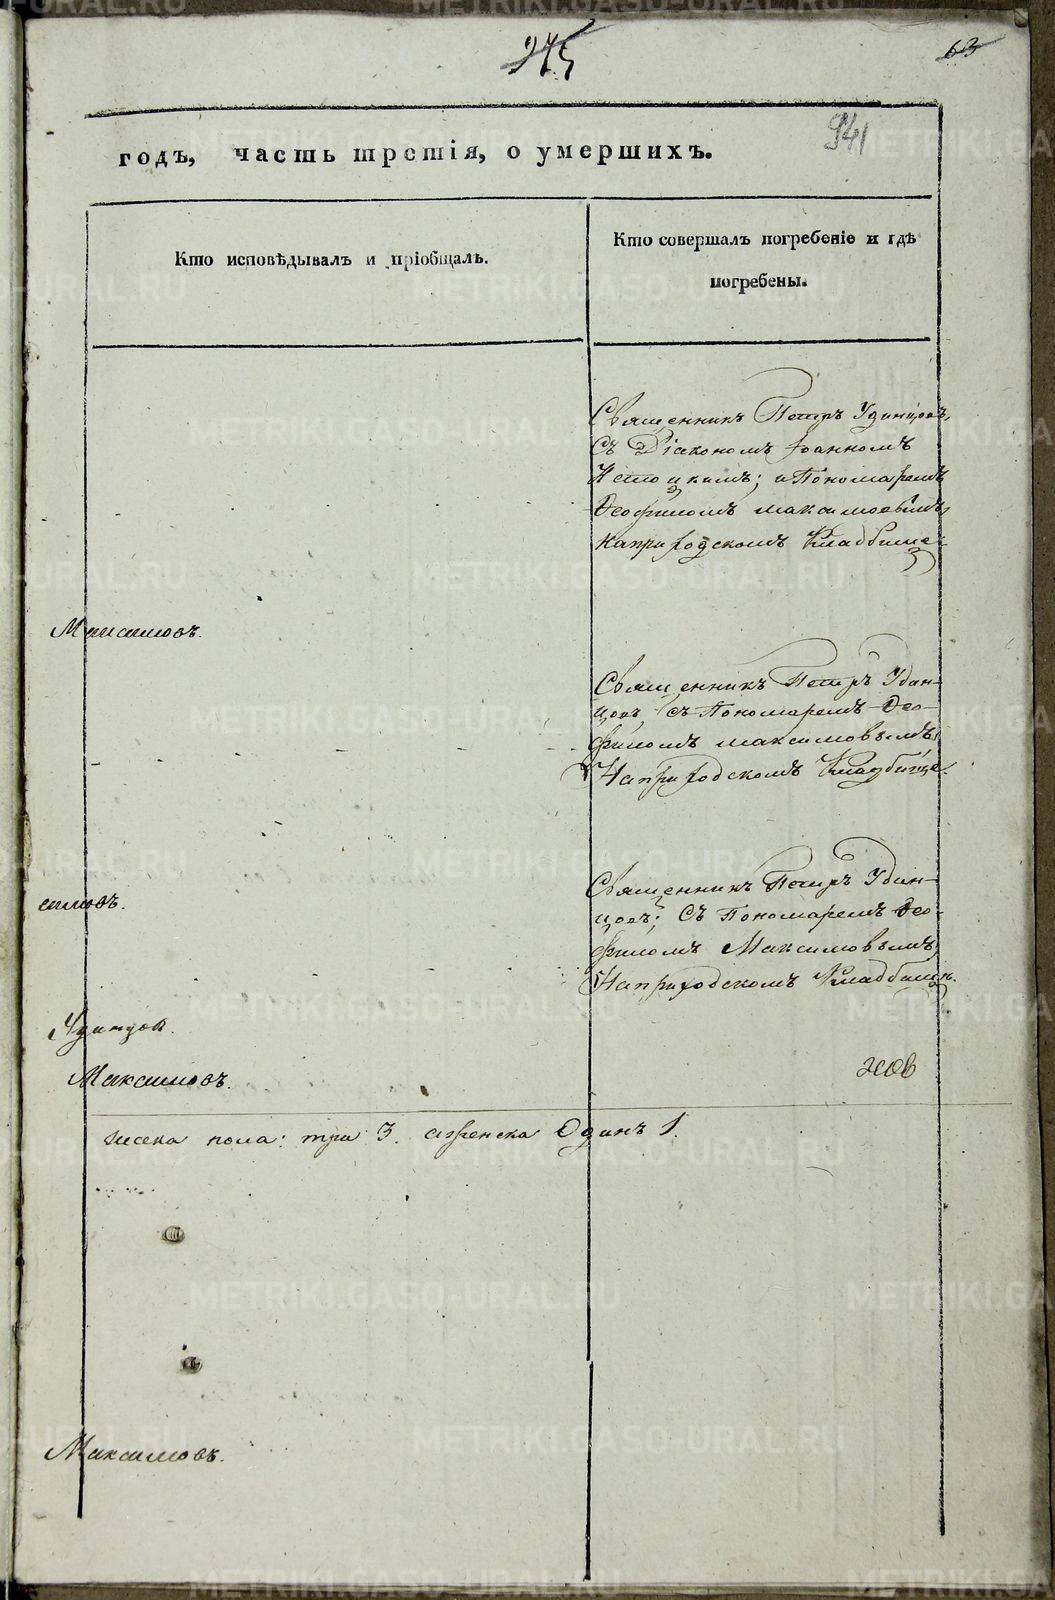 275
63
941
годъ, часть третія, о умершихъ.
Кто исповѣдывалъ и пріобщалъ.
Кто совершалъ погребеніе и гдѣ
погребены.
Священникъ Петръ Удинцовъ,
съ Діакономъ Іоанномъ
и Пономаремъ
Ѳеофиломъ Максимовымъ,
На приходскомъ Кладбище
Максимовъ.
Священникъ Петръ Удин-
цовъ, съ Пономаремъ Ѳео-
филомъ Максимовымъ,
На приходскомъ Кладбище.
Священникъ Петръ Удин-
цовъ; съ Пономаремъ Ѳео-
филомъ Максимовымъ,
На приходскомъ Кладбищѣ.
симовъ.
Удинцов.
Максимовъ.
жеска пола: три 3. аженска Одинъ 1.
Максимовъ.
METRIKI.GASO-URAL.RU